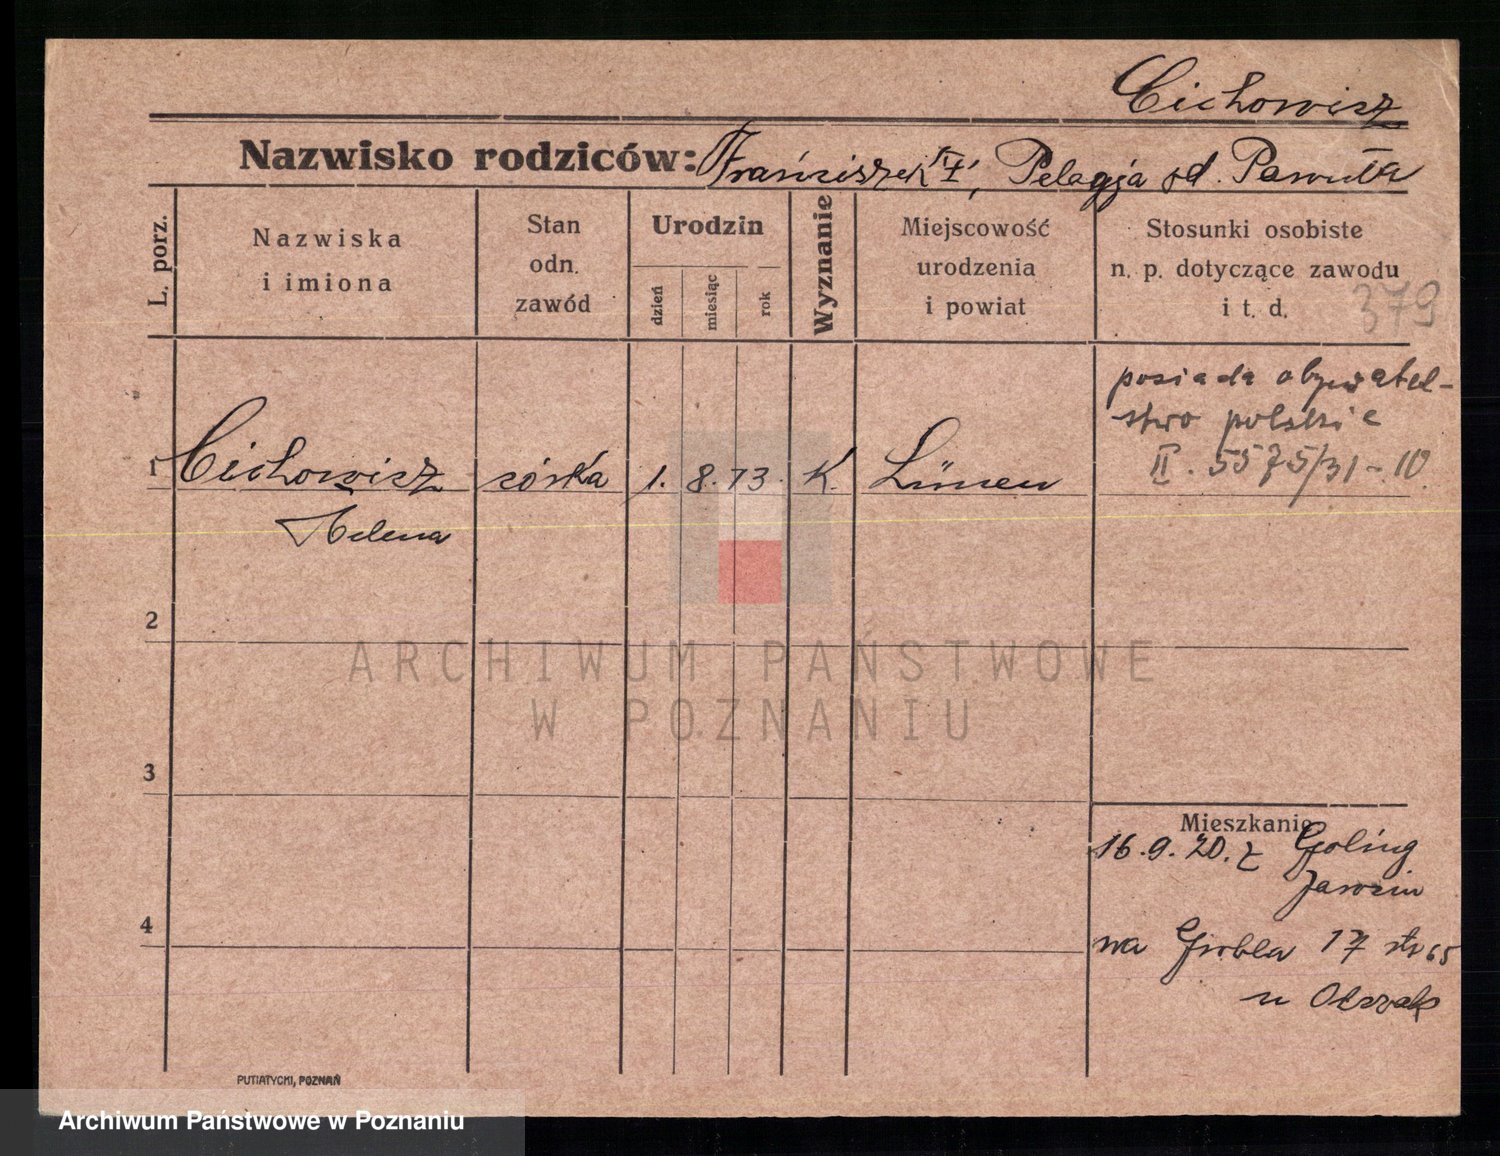 Cichowisz
Nazwisko rodziców: Franciszek, Pelagja od. Pawuła
L. porz.
Nazwiska
i imiona
Stan
odn.
zawód
Urodzin
dzień
miesiąc
rok
Wyznanie
Miejscowość
urodzenia
i powiat
Stosunki osobiste
n. p. dotyczące zawodu
i t. d.
379
posiada obywatel-
stwo polskie
II. 5575/31-IV.
1 Cichowisz córka 1. 8. 13 K. Lünen
Helena
2
3
4
Mieszkanie
16.9.20. z
Jarocin
na Grobla 17 65
PUTIATYCKI, POZNAŃ
ARCHIWUM PAŃSTWOWE
W POZNANIU
Archiwum Państwowe w Poznaniu